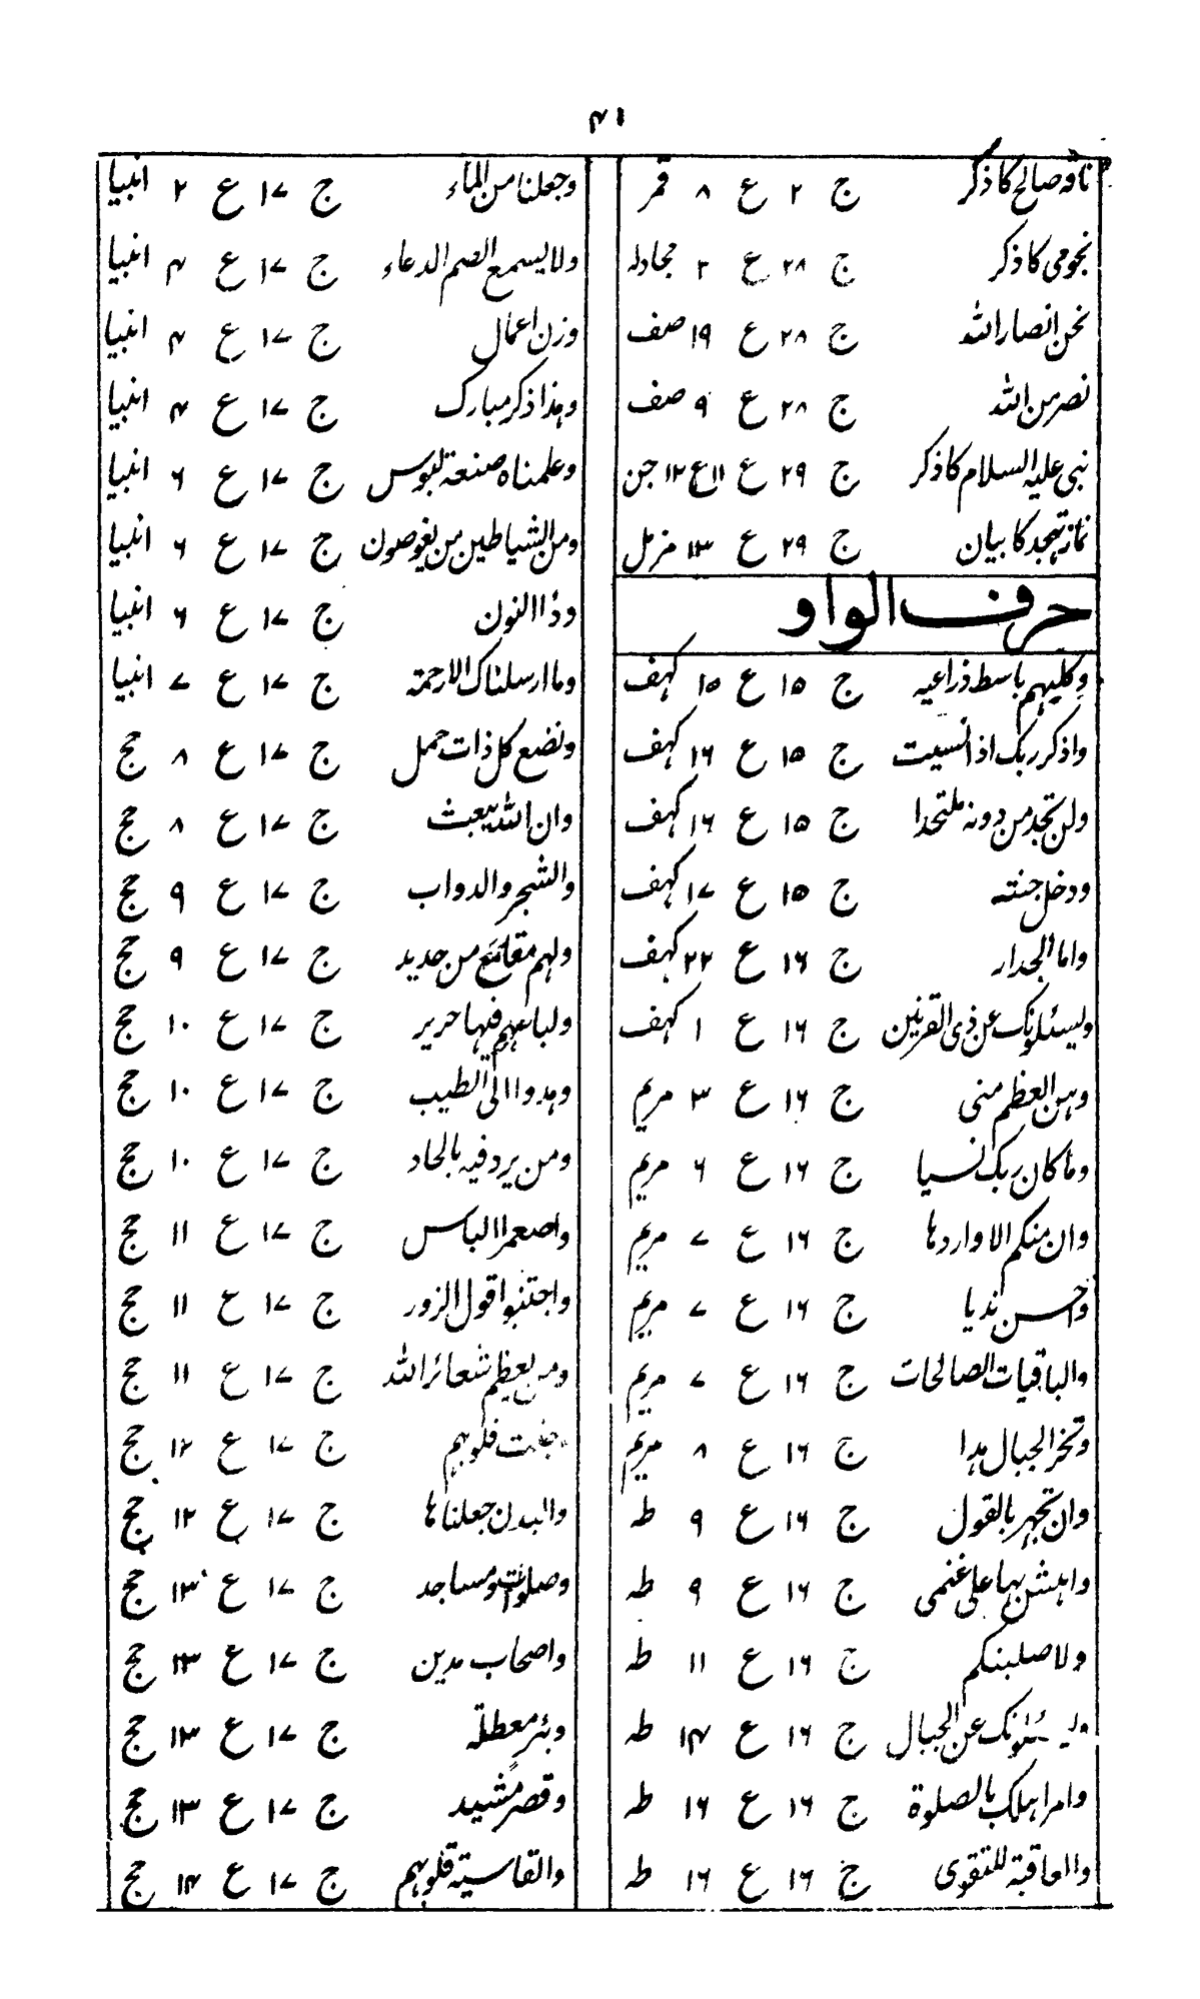 ۴۱
ناقہ صالح کا ذکر ج ۲ ع ۸ قمر
نجومی کا ذکر ج ۲۸ ع ۲ مجادلہ
نحن انصار اللہ ج ۲۸ ع ۱۹ صف
نصر من اللہ ج ۲۸ ع ۹ صف
نبی علیہ السلام کا ذکر ج ۲۹ ع ۱۱ ع ۱۲ جن
نماز تہجد کا بیان ج ۲۹ ع ۱۳ مزمل
حرف الواو
وکلبہم باسط ذراعیہ ج ۱۵ ع ۱۵ کہف
واذکر ربک اذا نسیت ج ۱۵ ع ۱۶ کہف
ولن تجد من دونہ ملتحدا ج ۱۵ ع ۱۶ کہف
ودخل جنتہ ج ۱۵ ع ۱۷ کہف
واما الجدار ج ۱۶ ع ۲۲ کہف
ویسئلونک عن ذی القرنین ج ۱۶ ع ۱ کہف
وہن العظم منی ج ۱۶ ع ۳ مریم
وما کان ربک نسیا ج ۱۶ ع ۶ مریم
وان منکم الا واردہا ج ۱۶ ع ۷ مریم
واحسن ندیا ج ۱۶ ع ۷ مریم
والباقیات الصالحات ج ۱۶ ع ۷ مریم
وتخر الجبال ہدا ج ۱۶ ع ۸ مریم
وان تجہر بالقول ج ۱۶ ع ۹ طہ
واہش بہا علی غنمی ج ۱۶ ع ۹ طہ
ولاصلبنکم ج ۱۶ ع ۱۱ طہ
ویسئلونک عن الجبال ج ۱۶ ع ۱۴ طہ
وامر اہلک بالصلوۃ ج ۱۶ ع ۱۶ طہ
والعاقبۃ للتقوی ج ۱۶ ع ۱۶ طہ
وجعلنا من الماء ج ۱۷ ع ۲ انبیا
ولا یسمع الصم الدعاء ج ۱۷ ع ۴ انبیا
وزن اعمال ج ۱۷ ع ۴ انبیا
وہذا ذکر مبارک ج ۱۷ ع ۴ انبیا
وعلمناہ صنعۃ لبوس ج ۱۷ ع ۶ انبیا
ومن الشیاطین من یغوصون ج ۱۷ ع ۶ انبیا
وذا النون ج ۱۷ ع ۶ انبیا
وما ارسلناک الا رحمۃ ج ۱۷ ع ۷ انبیا
وتضع کل ذات حمل ج ۱۷ ع ۸ حج
وان اللہ یبعث ج ۱۷ ع ۸ حج
والشجر والدواب ج ۱۷ ع ۹ حج
ولہم مقامع من حدید ج ۱۷ ع ۹ حج
ولباسہم فیہا حریر ج ۱۷ ع ۱۰ حج
وہدوا الی الطیب ج ۱۷ ع ۱۰ حج
ومن یرد فیہ بالحاد ج ۱۷ ع ۱۰ حج
ج ۱۷ ع ۱۱ حج
واجتنبوا قول الزور ج ۱۷ ع ۱۱ حج
ومن یعظم شعائر اللہ ج ۱۷ ع ۱۱ حج
قلوبہم ج ۱۷ ع ۱۲ حج
والبدن جعلناہا ج ۱۷ ع ۱۲ حج
وصلوات ومساجد ج ۱۷ ع ۱۳ حج
واصحاب مدین ج ۱۷ ع ۱۳ حج
وبئر معطلۃ ج ۱۷ ع ۱۳ حج
وقصر مشید ج ۱۷ ع ۱۳ حج
والقاسیۃ قلوبہم ج ۱۷ ع ۱۴ حج